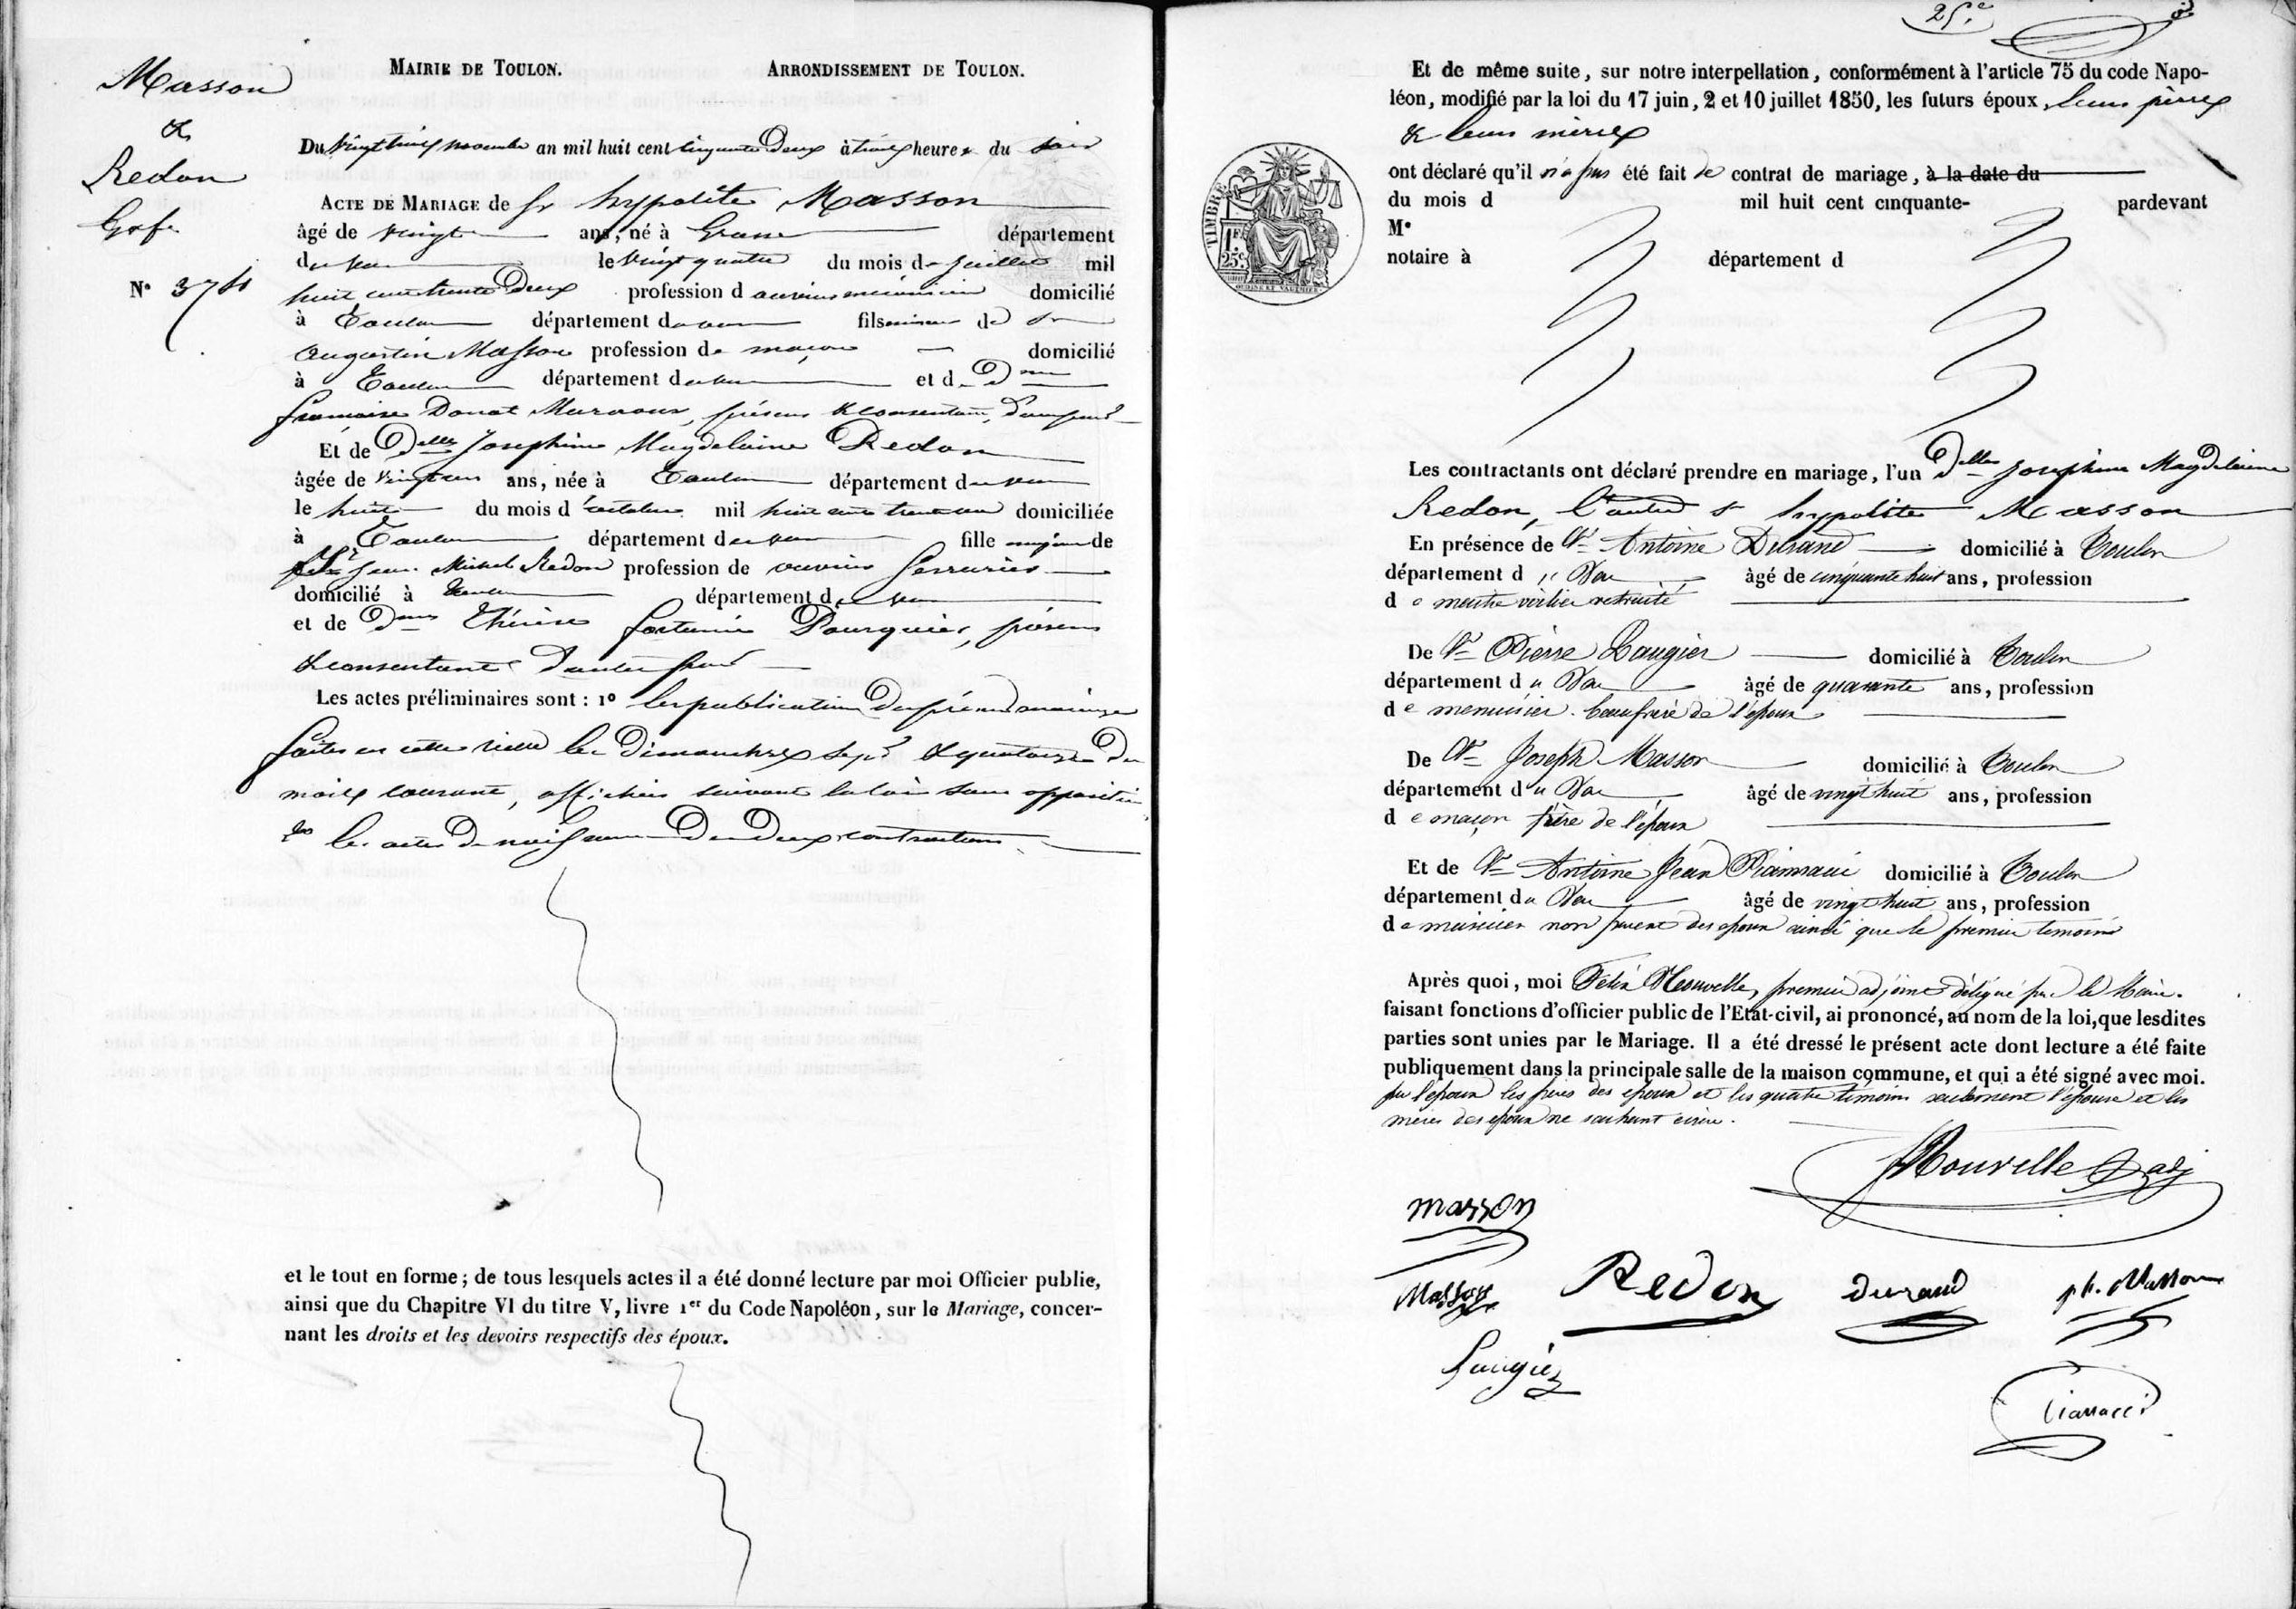 Masson
&
Redon
MAIRIE DE TOULON. ARRONDISSEMENT DE TOULON.
Du vingt trois novembre an mil huit cent cinquante Deux à trois heures du soir
ACTE DE MARIAGE de Sr hypolite Masson
âgé de vingt ans, né à Grasse département
du var le vingt quatre du mois de juillet mil
huit cent trente Deux profession d'ouvrier mécanicien domicilié
N° 374
à Toulon département du var fils mineur de Sr
augustin Masson profession de maçon domicilié
à Toulon département du var et de Dme
françoise Donat présens & consentans, D'une part
Et de Delle Josephine Magdelaine Redon
âgée de vingt un ans, née à Toulon département du var
le huit du mois d'octobre mil huit cent trente un domiciliée
à Toulon département du var fille majeure de
Jean Michel Redon profession de ouvrier Serrurier
domicilié à Toulon département du var
et de Dme Thérèse fortunée Pourquier, présens
& consentans D'autre part
Les actes préliminaires sont : 1° les publications Du présent mariage
faites en cette ville les Dimanches sept & quatorze Du
mois courant, affichées suivant la loi sans opposition
2do les actes De naissance Des Deux contractans
et le tout en forme ; de tous lesquels actes il a été donné lecture par moi Officier public,
ainsi que du Chapitre VI du titre V, livre 1er du Code Napoléon, sur le Mariage, concer-
nant les droits et les devoirs respectifs des époux.
Et de même suite, sur notre interpellation, conformément à l'article 75 du code Napo-
léon, modifié par la loi du 17 juin, 2 et 10 juillet 1850, les futurs époux, leurs pères
& leurs mères
ont déclaré qu'il n'a pas été fait de contrat de mariage, à la date du
du mois d mil huit cent cinquante- pardevant
Me
notaire à département d
TIMBRE
1F.
25c.
Les contractants ont déclaré prendre en mariage, l'un Delle Josephine Magdelaine
Redon, l'autre Sr hypolite Masson
En présence de Sr Antoine Durand domicilié à Toulon
département du Var âgé de cinquante huit ans, profession
de maitre voilier retraité
De Sr Pierre Laugier domicilié à Toulon
département du Var âgé de quarante ans, profession
de menuisier. beaufrère de l'époux
De Sr Joseph Masson domicilié à Toulon
département du Var âgé de vingt huit ans, profession
de maçon frère de l'époux
Et de Sr Antoine Jean domicilié à Toulon
département du Var âgé de vingt huit ans, profession
de non parent des époux ainsi que le premier temoins
Après quoi, moi Félix Nouvelle, premier adjoint délégué par le Maire.
faisant fonctions d'officier public de l'Etat-civil, ai prononcé, au nom de la loi, que lesdites
parties sont unies par le Mariage. Il a été dressé le présent acte dont lecture a été faite
publiquement dans la principale salle de la maison commune, et qui a été signé avec moi.
par l'époux les pères des époux et les quatre témoins seulement l'épouse et les
mères des époux ne sachant écrire.
Nouvelle adj
masson
Masson Redon durand ph. Masson
Laugier